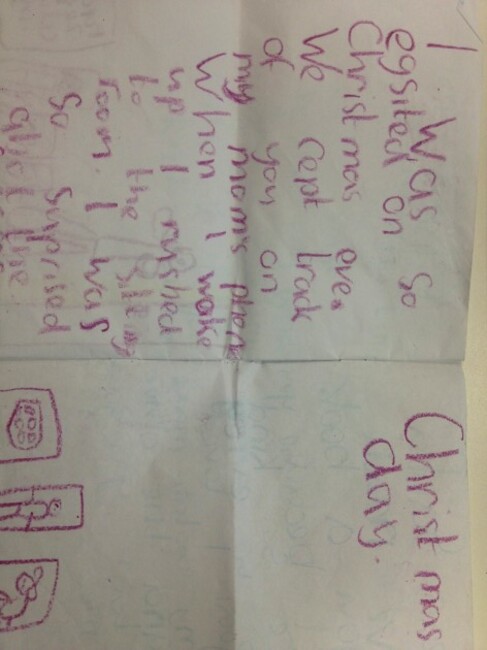 I was so
egsited on
Christmas eve.
We cept track
of you on
my mom's phone
When I woke
up I rushed
to the sitting
room. I was
So suprised
Christmas
day.